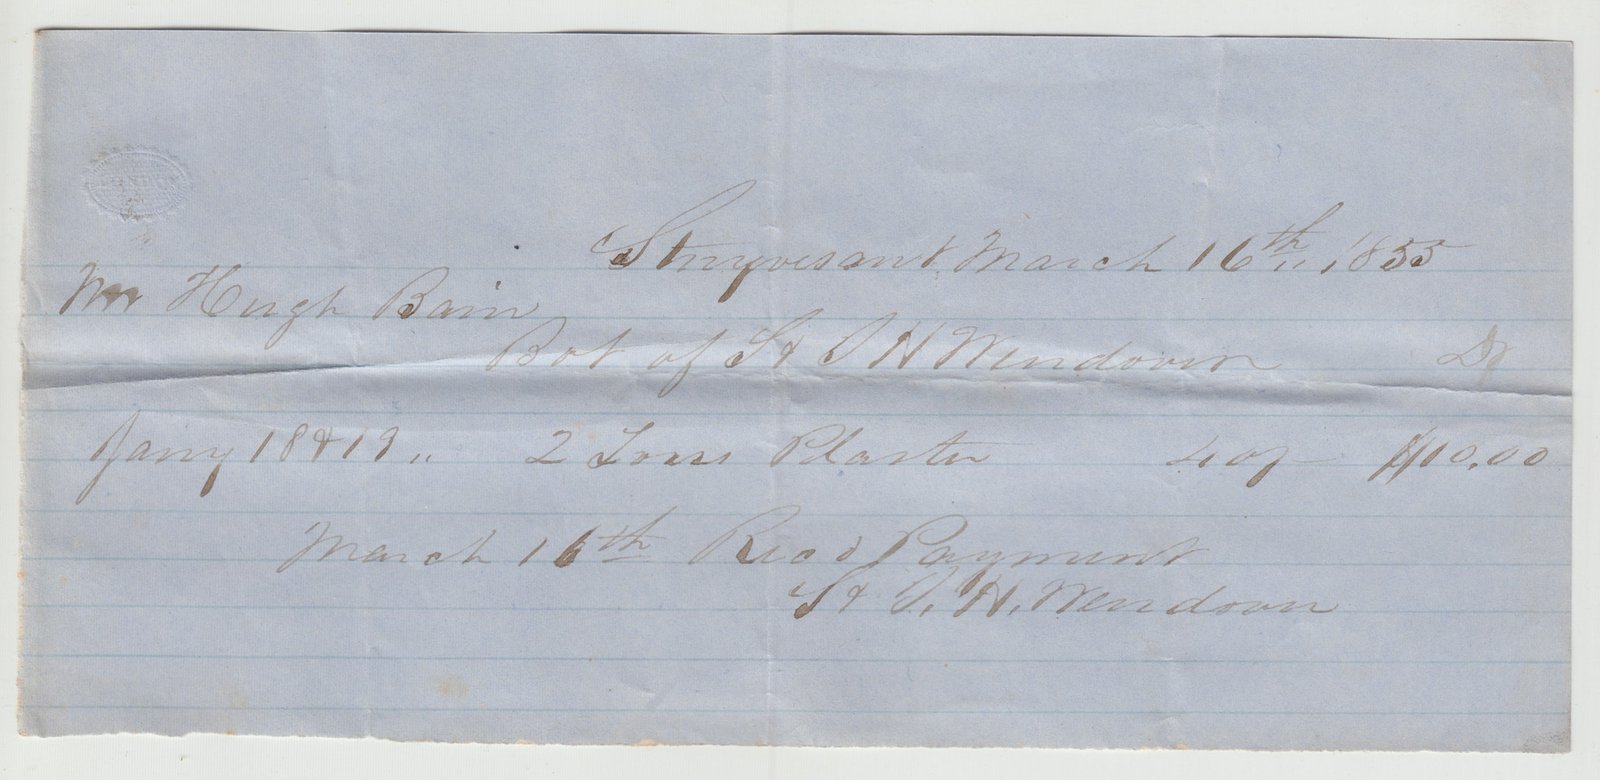 Stuyvesant March 16th,, 1855
Mr Hugh Bain
Bot of S & J H Wendover Dr
Jany 18 & 19 ,, 2 Tons Plaster 40/- $10.00
March 16th Recd Payment
S & J. H. Wendover